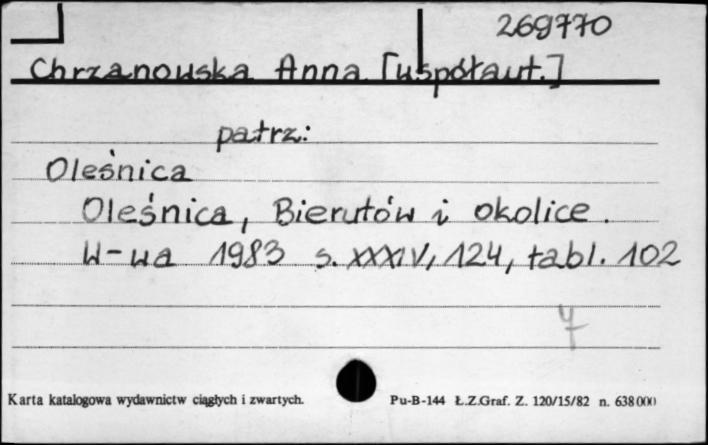 269770
Chrzanowska Anna [współaut.]
patrz:
Oleśnica
Oleśnica, Bierutów i okolice.
W-wa 1983 s. XXXIV, 124, tabl. 102
7
Karta katalogowa wydawnictw ciągłych i zwartych. Pu-B-144 Ł.Z.Graf. Z. 120/15/82 n. 638000